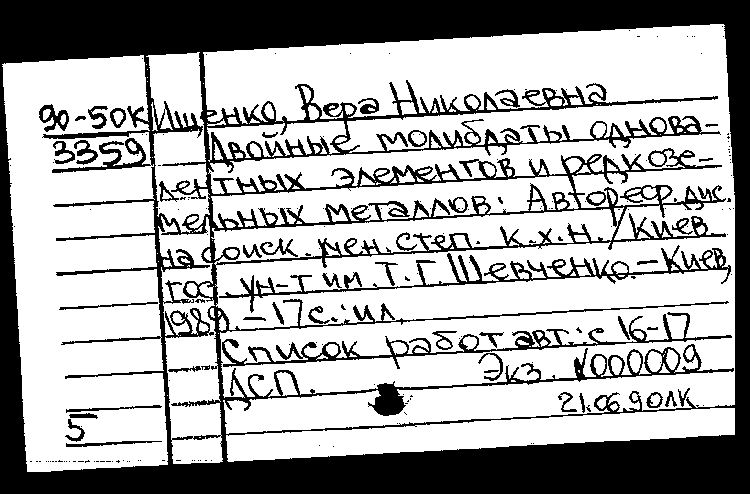 90-50К Ищенко, Вера Николаевна
3359 Двойные молибдаты однова-
лентных элементов и редкозе-
мельных металлов: Автореф. дис.
на соиск. учен. степ. к.х.н. / Киев
гос. ун-т им. Т.Г. Шевченко. – Киев,
1989. – 17 с.: ил.
Список работ авт.: с 16-17
ДСП. Экз. №000009
21.06.90ЛК
5